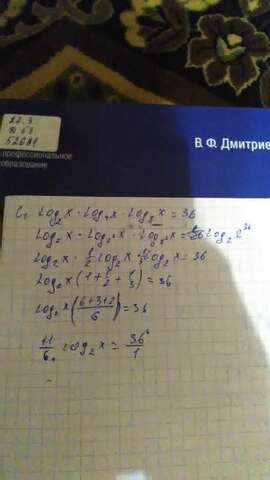 22.3
52681
В. Ф. Дмитрие
профессиональное
образование
log₂x · log₄x · log₈x = 36
log₂x · log₂²x · log₂³x = 36 log₂2³⁶
log₂x · 1/2 log₂x · 1/3 log₂x = 36
log₂x (1 + 1/2 + 1/3) = 36
log₂x (6+3+2/6) = 36
11/6 · log₂x = 36⁶/1